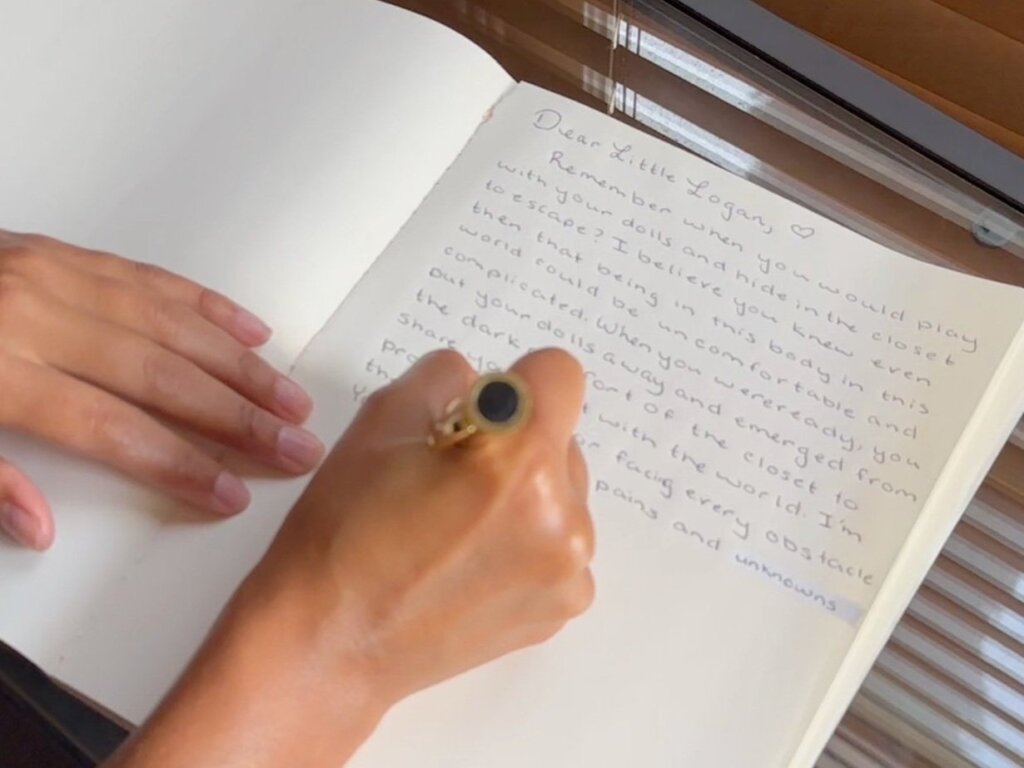 Dear Little Logan, ♡
Remember when you would play
with your dolls and hide in the closet
to escape? I believe you knew even
then that being in this body in this
world could be uncomfortable and
complicated. When you were ready, you
put your dolls away and emerged from
the dark of the closet to
share with the world. I'm
facing every obstacle
pains and unknowns